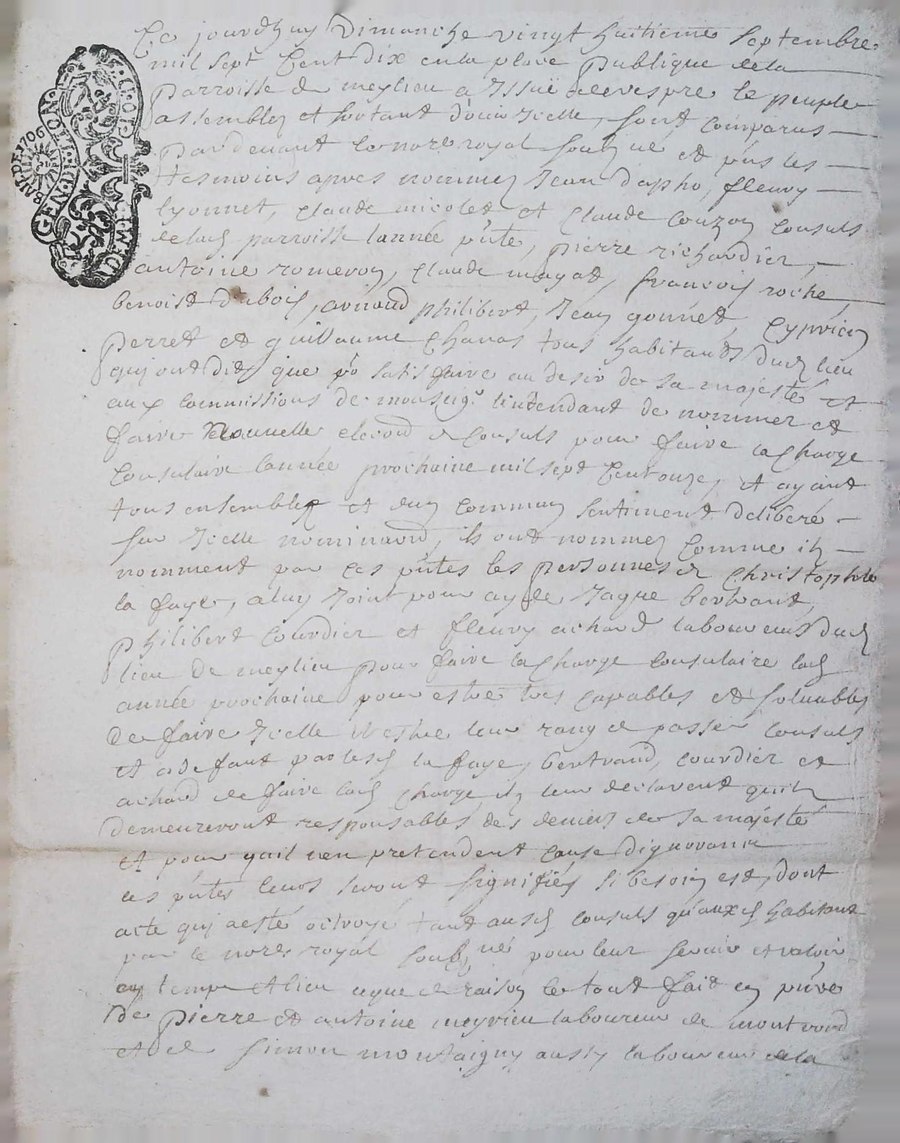 BAIL DE 1706
GEN. DE LION.
Ce jourdhuy dimanche vingt huitieme septembre
mil sept cent dix en la place publique de la
parroisse de meylieu a Issuë de vespre le peuple
assemblez et sortant douir Icelle, sont comparus
pardevant le nore royal soubz né et pnts les
tesmoins apres nommez Jean dapho, fleury
lyonnet, claude nicolet et claude couzon consuls
de lad parroisse lannée pnte, pierre richardier,
antoine romeron, claude mayat, francois roche,
benoist dubois, arnaud philibert, Jean gonnet, cyprien
perret et guillaume chanas tous habitants dud lieu
qui ont dit que po satisfaire au desir de sa majesté et
aux commissions de monseigr lintendant de nommer et
faire nouvelle election de consuls pour faire la charge
consulaire lannée prochaine mil sept cent onze, et ayant
tous ensemble et dun commun sentiment deliberé
sur Icelle nominaon, ils ont nommez comme ils
nomment par ces pntes les personnes de christophle
la faye, a luy Joint pour ayde Jaque bertrand,
philibert courdier et fleury achard laboureurs dud
lieu de meylieu pour faire la charge consulaire lad
année prochaine pour estre tres capables et soluables
de faire Icelle et estre leur rang de passer consuls
et a defaut par lesd la faye, bertrand, courdier et
achard de faire lad charge ils leur declarent quils
demeureront responsables des deniers de sa majesté
et pour quil nen pretendent cause dignorance
les pntes leurs seront signifiés si besoin est, dont
acte qui a esté octroyé tant ausd consuls quauxd habitans
par le nore royal soubz né pour leur servir et valoir
en temps et lieu ce que de raison le tout fait en pnce
de pierre et antoine meyrieu laboureur de montrond
et de simon montaigny aussy laboureur de la